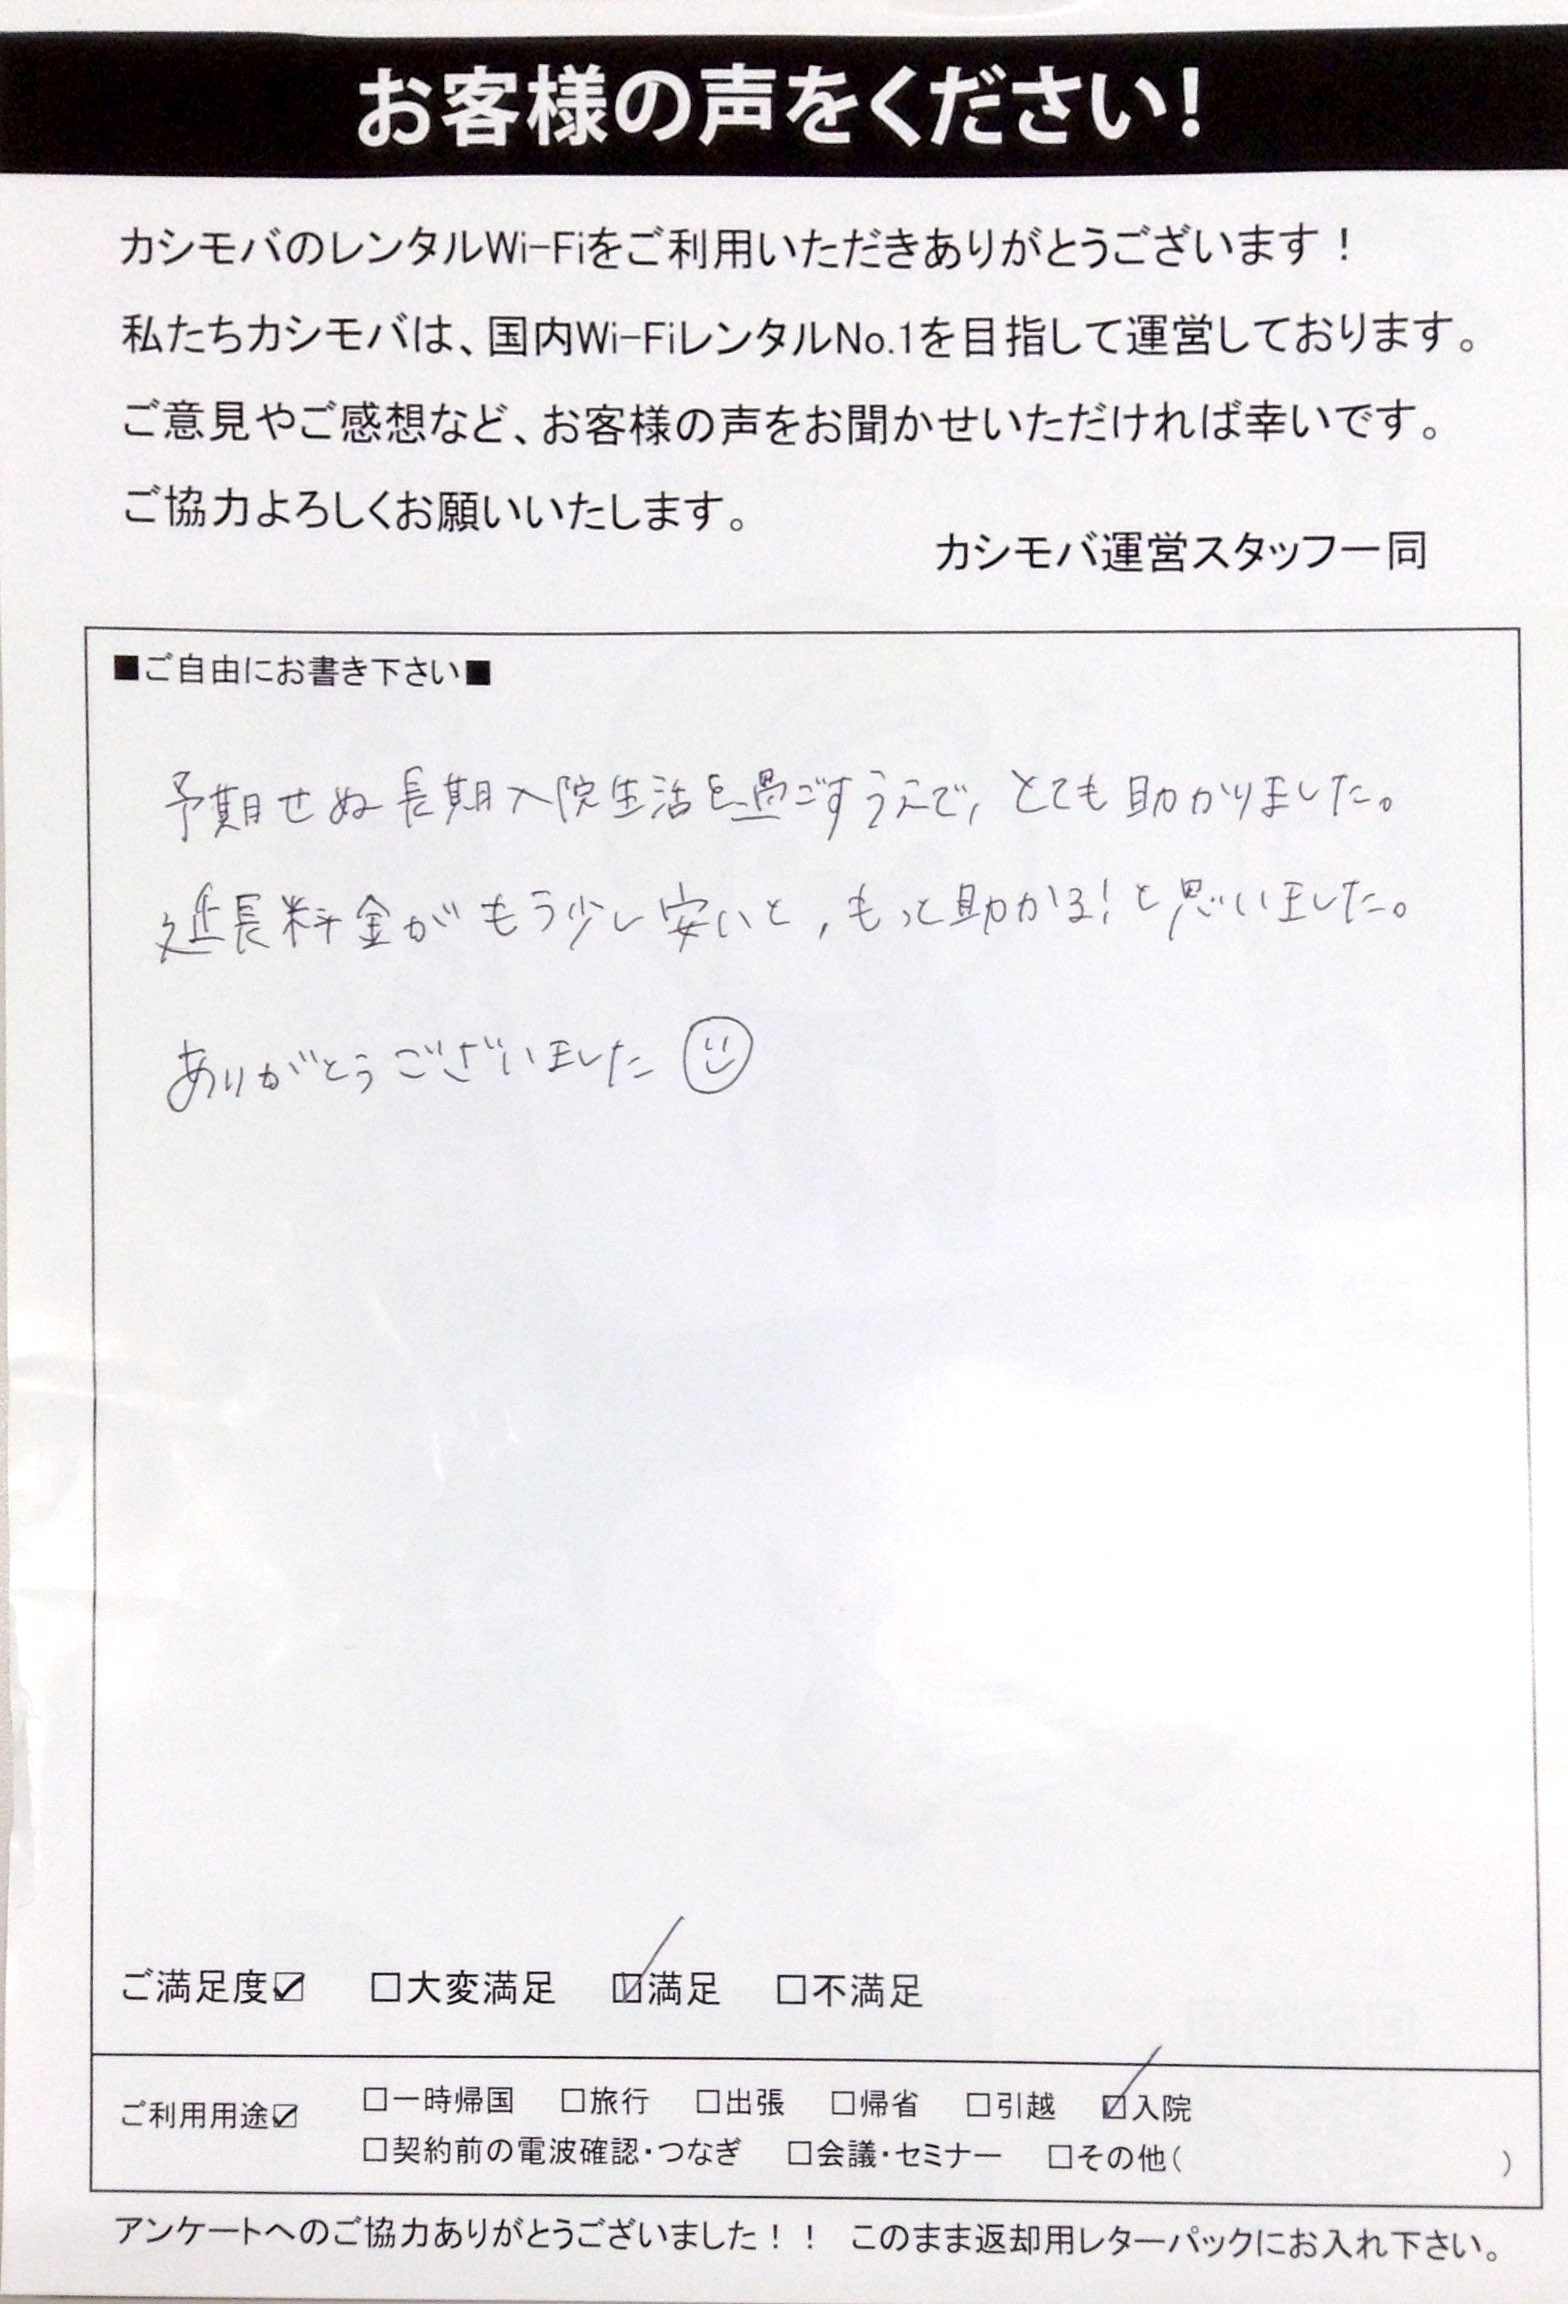 お客様の声をください!
カシモバのレンタルWi-Fiをご利用いただきありがとうございます！
私たちカシモバは、国内Wi-FiレンタルNo.1を目指して運営しております。
ご意見やご感想など、お客様の声をお聞かせいただければ幸いです。
ご協力よろしくお願いいたします。
カシモバ運営スタッフ一同
■ご自由にお書き下さい■
予期せぬ長期入院生活を過ごすうえで, とても助かりました。
延長料金がもう少し安いと, もっと助かる! と思いました。
ありがとうございました
ご満足度☑ □大変満足 ☑満足 □不満足
ご利用用途☑ □一時帰国 □旅行 □出張 □帰省 □引越 ☑入院
□契約前の電波確認・つなぎ □会議・セミナー □その他( )
アンケートへのご協力ありがとうございました！！ このまま返却用レターパックにお入れ下さい。